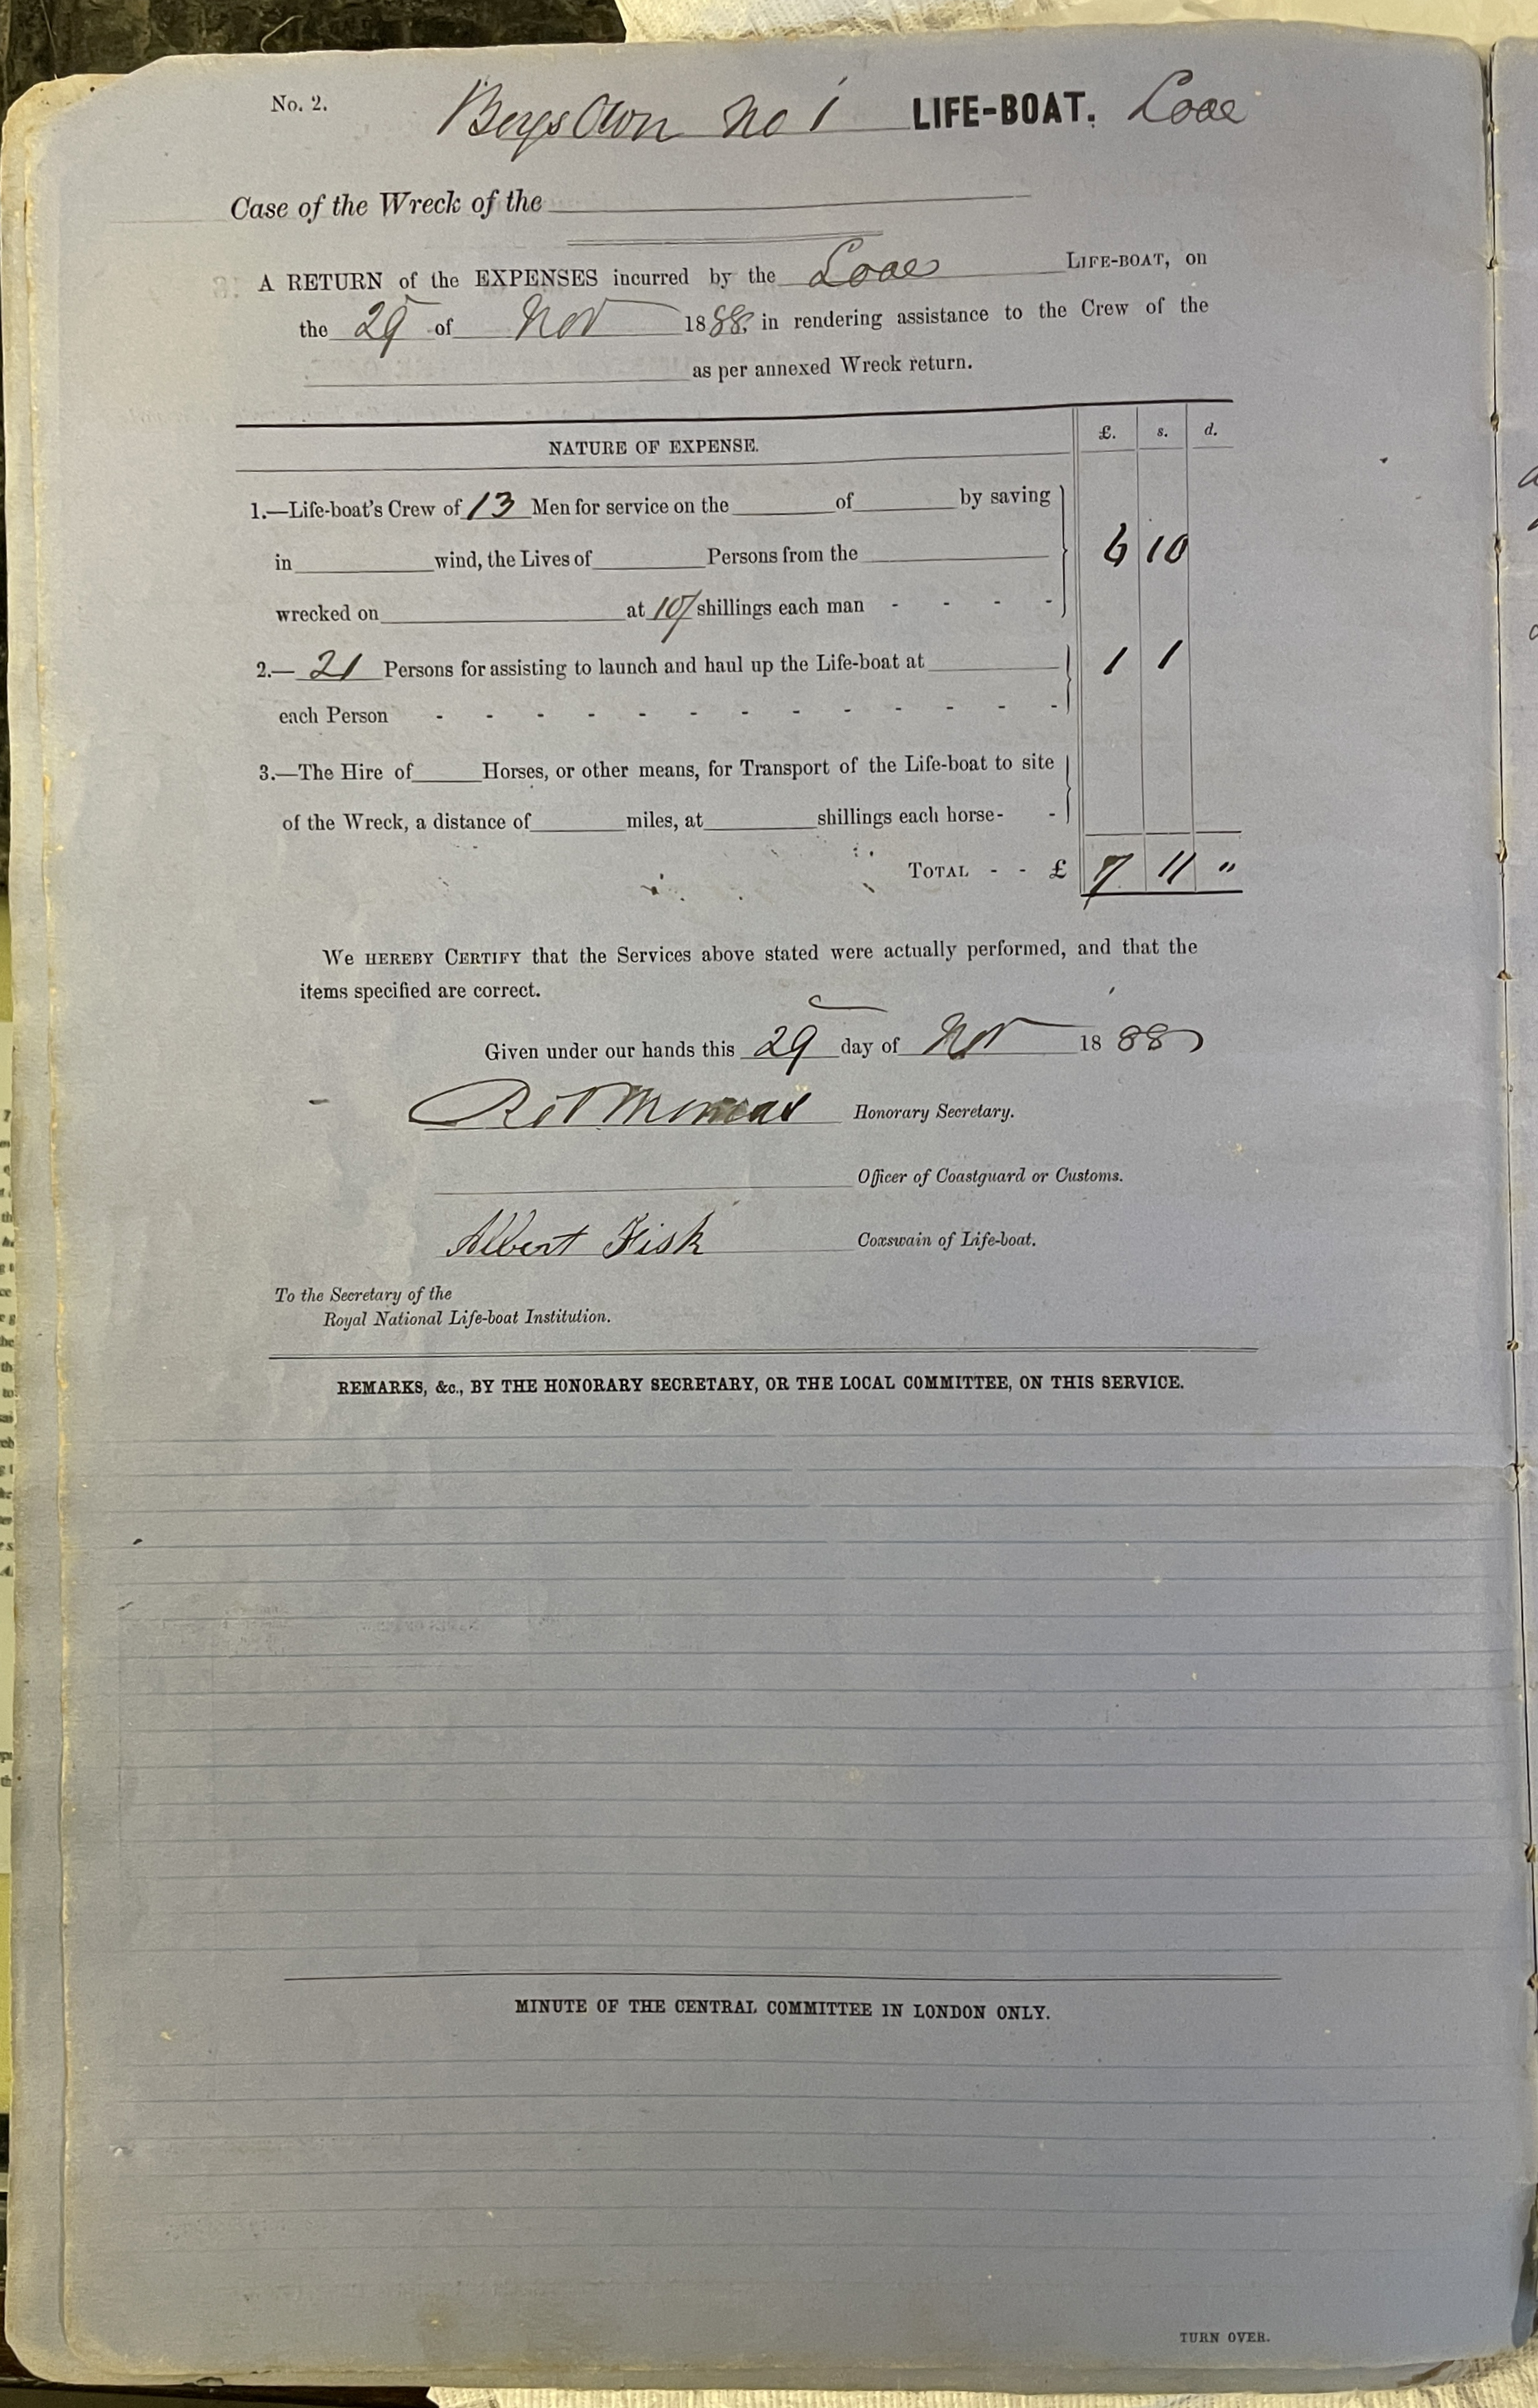 No. 2.
Boys Own No 1 LIFE-BOAT. Looe
Case of the Wreck of the
A RETURN of the EXPENSES incurred by the Looe LIFE-BOAT, on
the 29 of Nov 1888, in rendering assistance to the Crew of the
as per annexed Wreck return.
NATURE OF EXPENSE. £. s. d.
1.—Life-boat's Crew of 13 Men for service on the of by saving
in wind, the Lives of Persons from the 6 10
wrecked on at 10/ shillings each man - - - -
2.— 21 Persons for assisting to launch and haul up the Life-boat at 1 1
each Person - - - - - - - - - - - - -
3.—The Hire of Horses, or other means, for Transport of the Life-boat to site
of the Wreck, a distance of miles, at shillings each horse- -
TOTAL - - £ 7 11 "
We HEREBY CERTIFY that the Services above stated were actually performed, and that the
items specified are correct.
Given under our hands this 29 day of Nov 1888
Honorary Secretary.
Officer of Coastguard or Customs.
Albert Fisk Coxswain of Life-boat.
To the Secretary of the
Royal National Life-boat Institution.
REMARKS, &c., BY THE HONORARY SECRETARY, OR THE LOCAL COMMITTEE, ON THIS SERVICE.
MINUTE OF THE CENTRAL COMMITTEE IN LONDON ONLY.
TURN OVER.